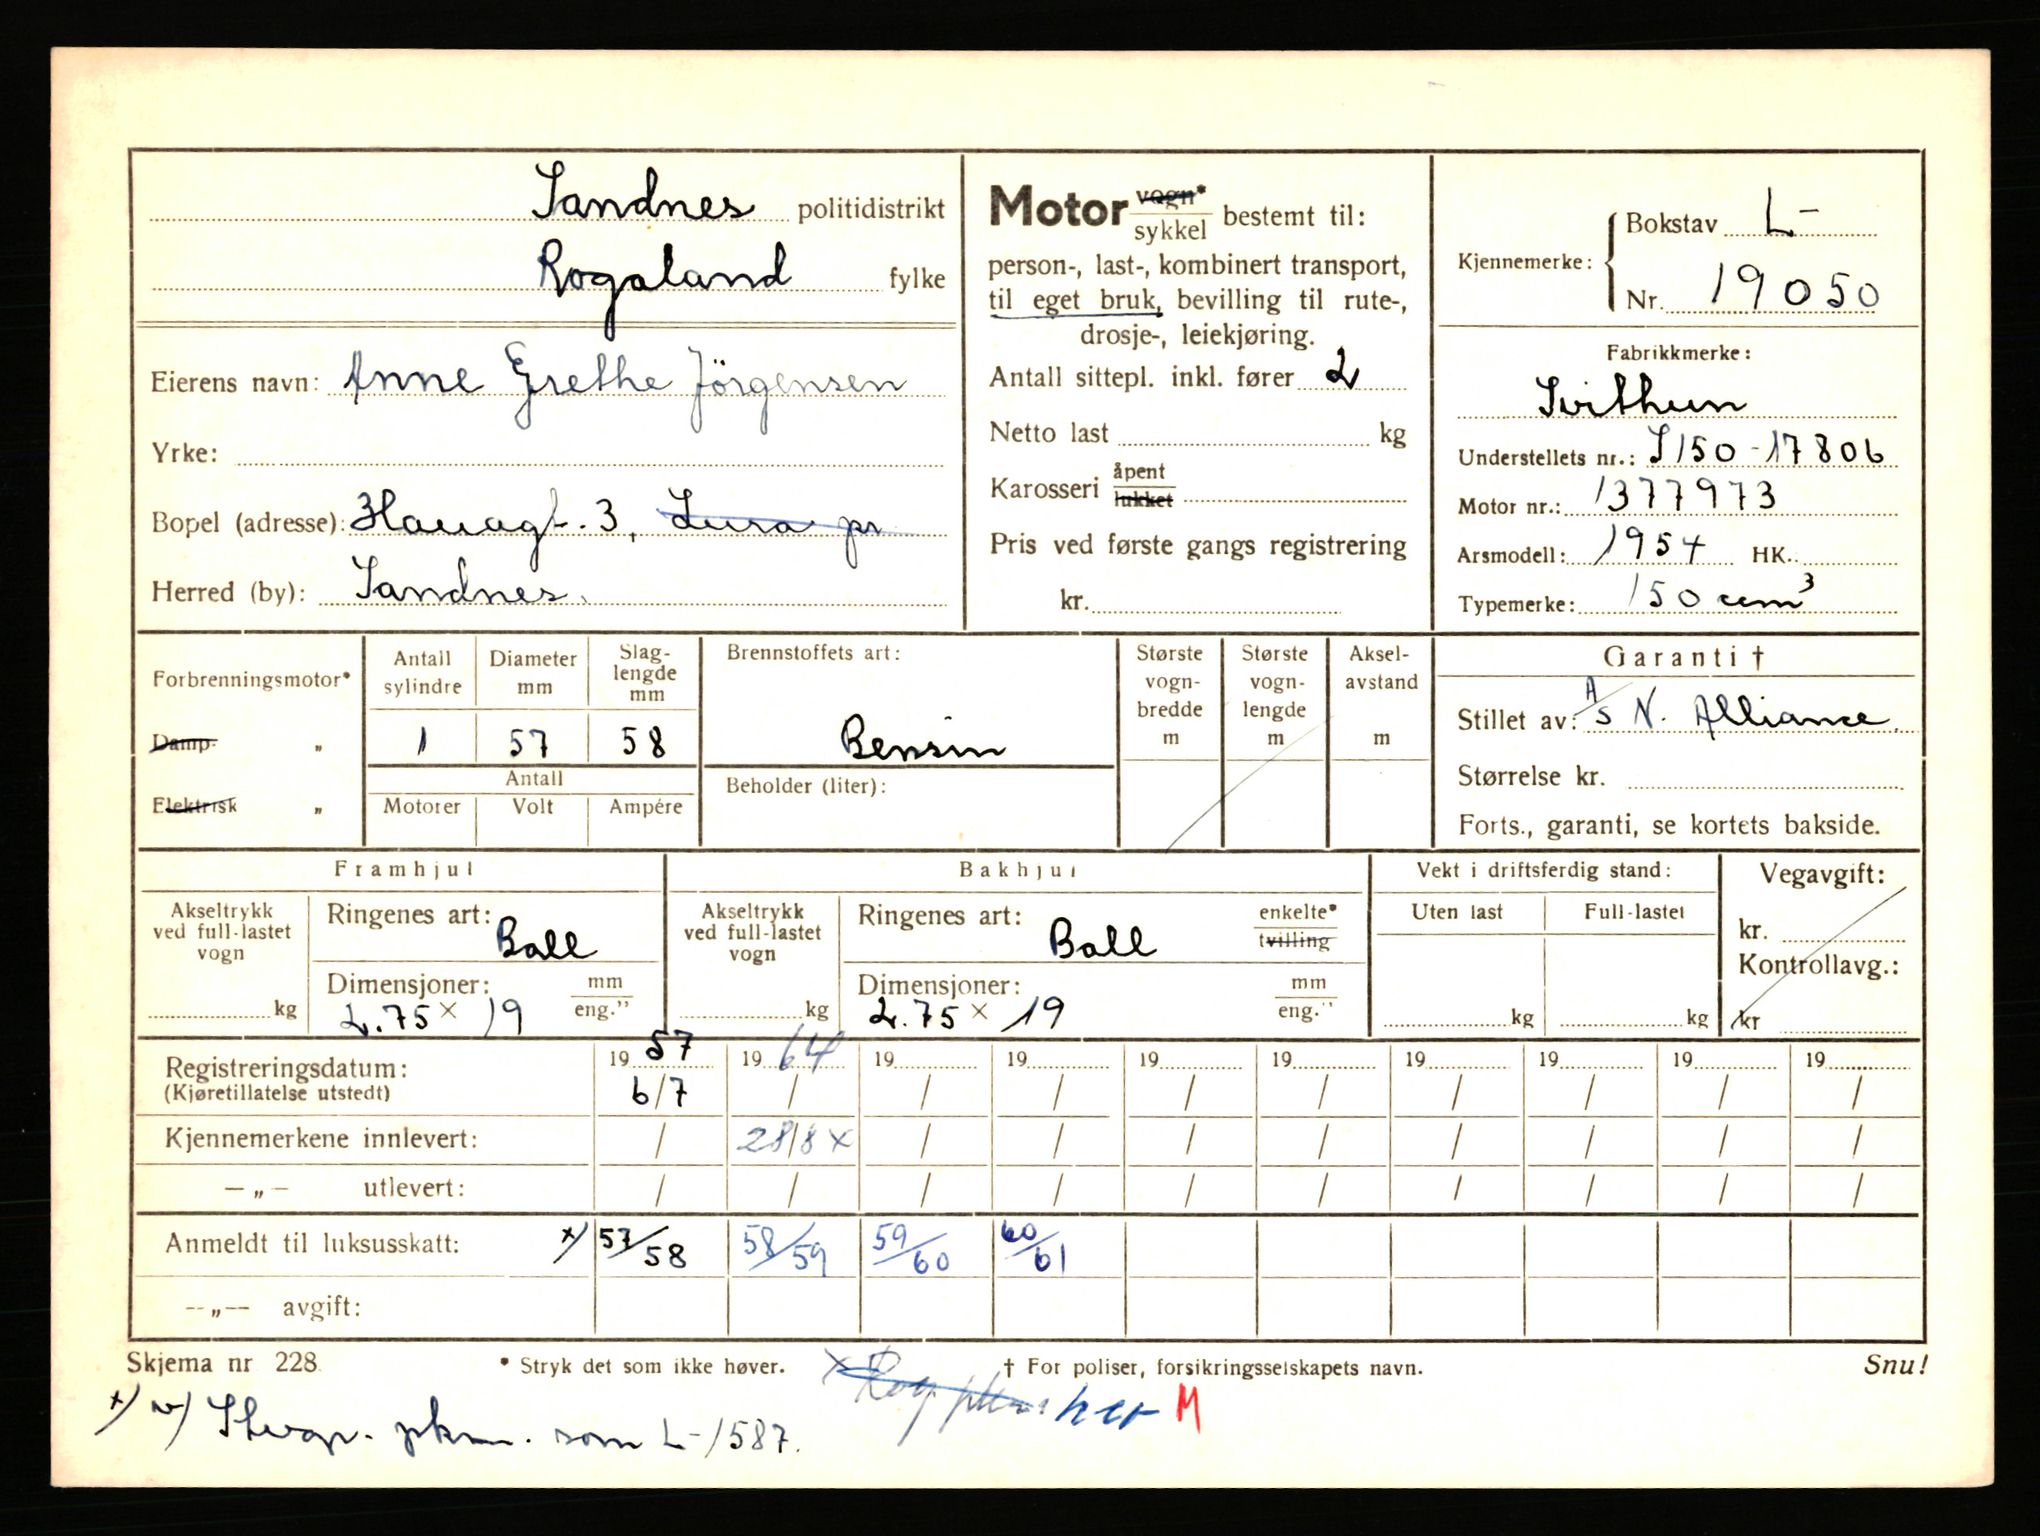 Sandnes politidistrikt
Rogaland fylke
Eierens navn: Anne Grethe Jörgensen
Yrke:
Bopel (adresse): Hauagt. 3, Lura pr
Herred (by): Sandnes.
Motor vogn* / sykkel bestemt til:
person-, last-, kombinert transport,
til eget bruk, bevilling til rute-,
drosje-, leiekjøring.
Antall sittepl. inkl. fører 2
Netto last kg
Karosseri åpent / lukket
Pris ved første gangs registrering
kr.
Kjennemerke: Bokstav L-
Nr. 19050
Fabrikkmerke:
Svithun
Understellets nr.: S150-17806
Motor nr.: 1377973
Arsmodell: 1954 HK.
Typemerke: 150 ccm³
Forbrenningsmotor*
Damp- „
Elektrisk „
Antall sylindre
Diameter mm
Slag-lengde mm
1 57 58
Antall
Motorer Volt Ampére
Brennstoffets art:
Bensin
Beholder (liter):
Største vogn-bredde m
Største vogn-lengde m
Aksel-avstand m
Garanti †
Stillet av: A/S N. Alliance.
Størrelse kr.
Forts., garanti, se kortets bakside.
Framhjul
Akseltrykk ved full-lastet vogn kg
Ringenes art: Ball
Dimensjoner: mm / eng."
2.75 x 19
Bakhjul
Akseltrykk ved full-lastet vogn kg
Ringenes art: Ball enkelte* / tvilling
Dimensjoner: mm / eng."
2.75 x 19
Vekt i driftsferdig stand:
Uten last Full-lastet
kg kg
Vegavgift:
kr.
Kontrollavg.:
kr
Registreringsdatum: 19 57 19 64 19 19 19 19 19 19 19 19
(Kjøretillatelse utstedt) 6/7 / / / / / / / / /
Kjennemerkene innlevert: / 28/8 x / / / / / / / /
—„— utlevert: / / / / / / / / / /
Anmeldt til luksusskatt: x) 57/58 58/59 59/60 60/61
—„— avgift:
Skjema nr 228 * Stryk det som ikke høver. † For poliser, forsikringsselskapets navn. Snu!
x her M
x) som L-1587.